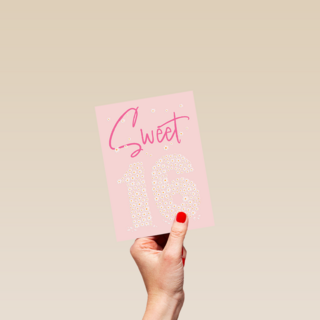 Sweet
16